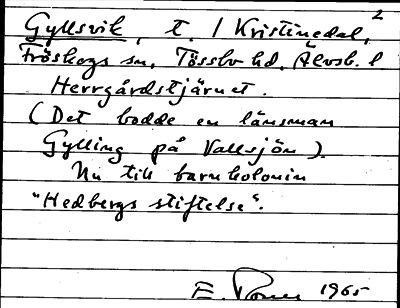 2
Gyllsvik, t. / Kristinedal,
Fröskogs sn, Tössbo hd, Älvsb. l
Herrgårdstjärnet.
(Det bodde en länsman
Gylling på Vallsjön).
Nu till barnkolonin
"Hedbergs stiftelse".
E. 1965